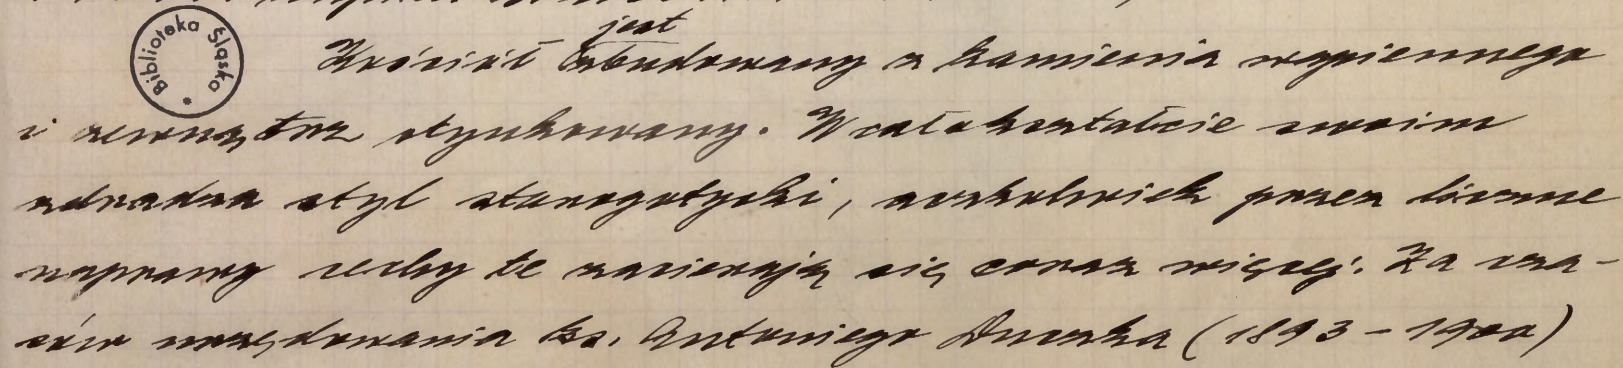 Biblioteka Śląska
jest
Kościół zbudowany z kamienia wapiennego
i zewnątrz otynkowany. W całokształcie swoim
zdradza styl starogotycki, aczkolwiek przez liczne
naprawy cechy te zacierają się coraz więcej. Za cza-
sów urzędowania ks. Antoniego (1893-1900)